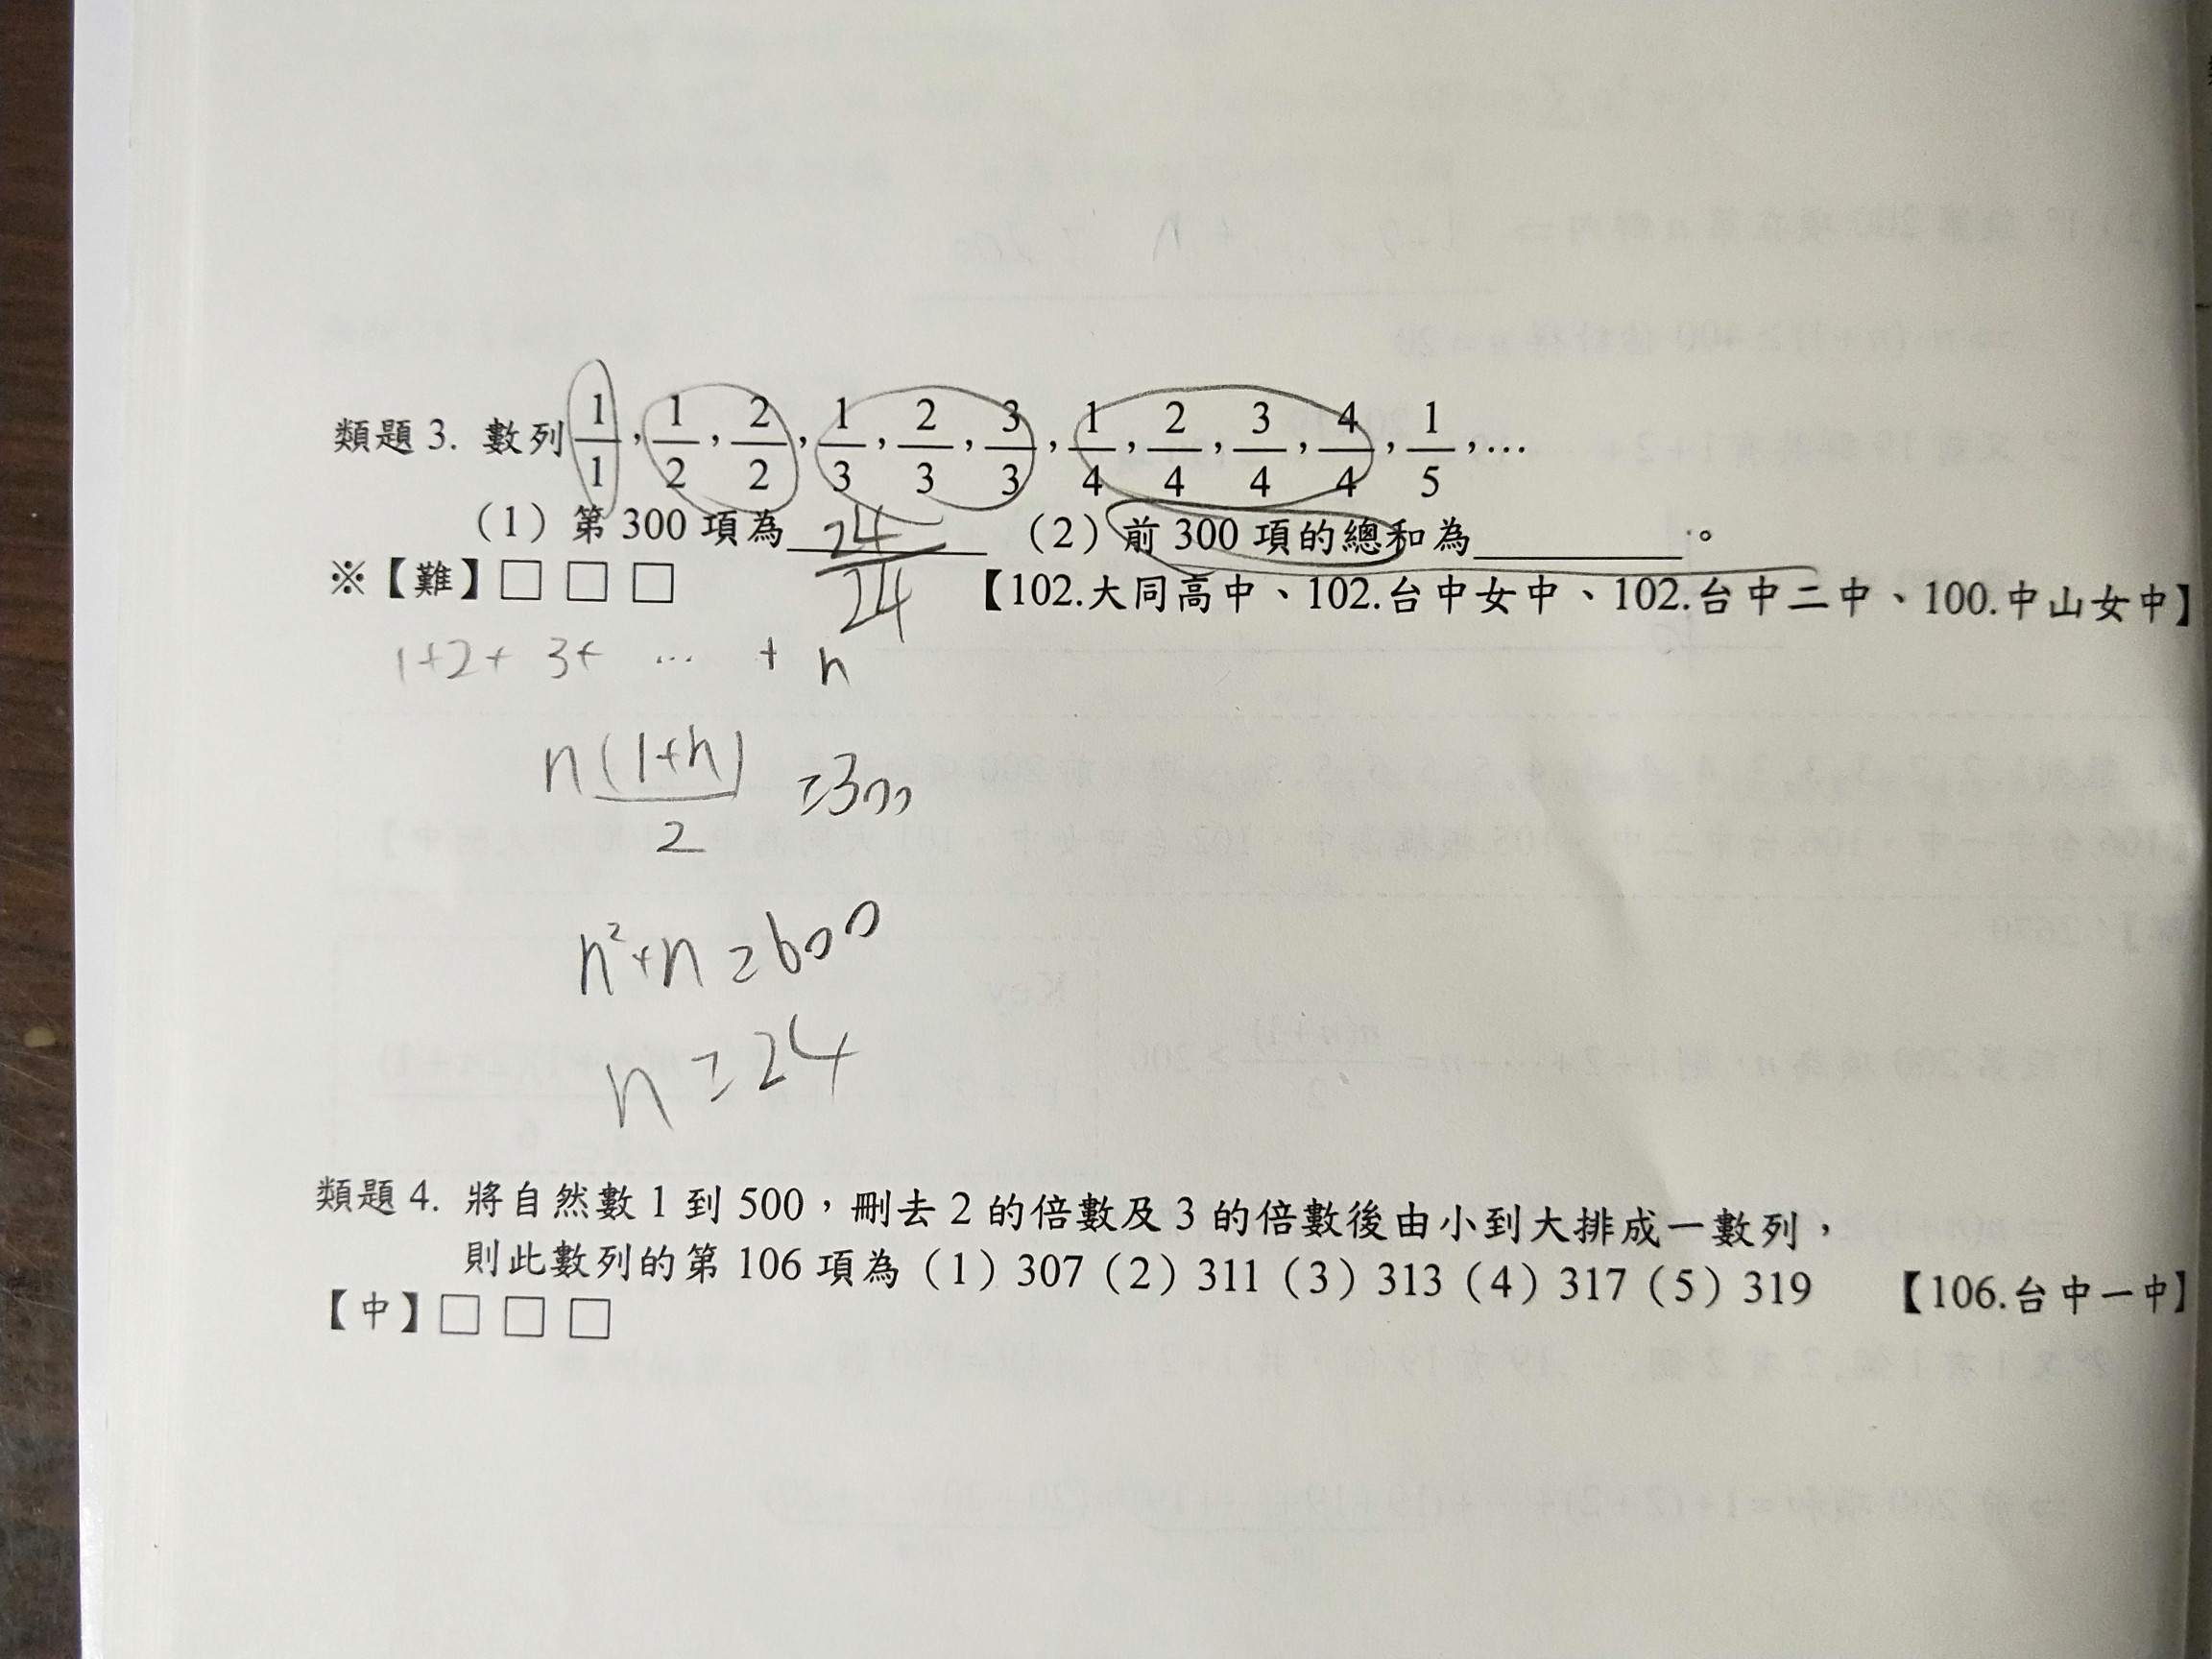 類題 3. 數列 1/1, 1/2, 2/2, 1/3, 2/3, 3/3, 1/4, 2/4, 3/4, 4/4, 1/5, …
（1）第 300 項為 24/24 （2）前 300 項的總和為________。
※【難】□ □ □ 【102.大同高中、102.台中女中、102.台中二中、100.中山女中】
1+2+ 3+ … + n
n(1+n)/2 =300
n²+n=600
n=24
類題 4. 將自然數 1 到 500，刪去 2 的倍數及 3 的倍數後由小到大排成一數列，
則此數列的第 106 項為（1）307（2）311（3）313（4）317（5）319 【106.台中一中】
【中】□ □ □